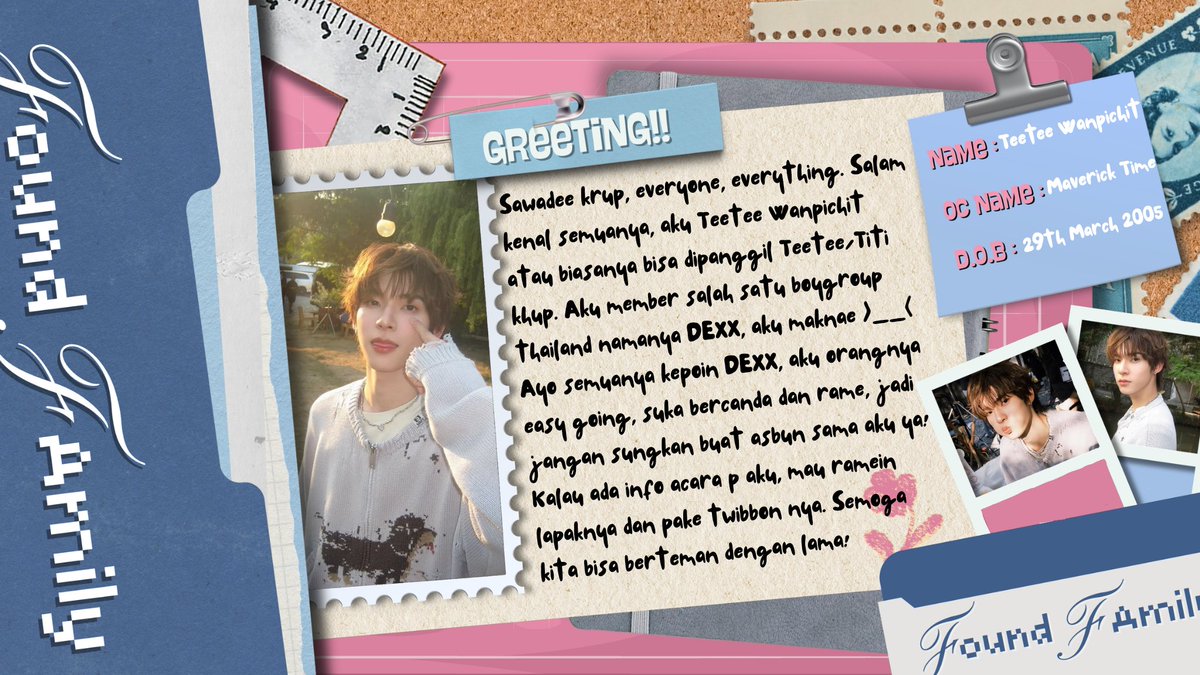 Found Family
GREETING!!
Sawadee krup, everyone, everything. Salam
kenal semuanya, aku Teetee Wanpichit
atau biasanya bisa dipanggil Teetee/Titi
khup. Aku member salah satu boygroup
Thailand namanya DEXX, aku maknae >__<
Ayo semuanya kepoin DEXX, aku orangnya
easy going, suka bercanda dan rame, jadi
jangan sungkan buat asbun sama aku ya!
Kalau ada info acara p aku, mau ramein
lapaknya dan pake twibbon nya. Semoga
kita bisa berteman dengan lama!
NAME : Teetee Wanpichit
OC NAME : Maverick Time
D.O.B : 29th March 2005
REVENUE
Found Family